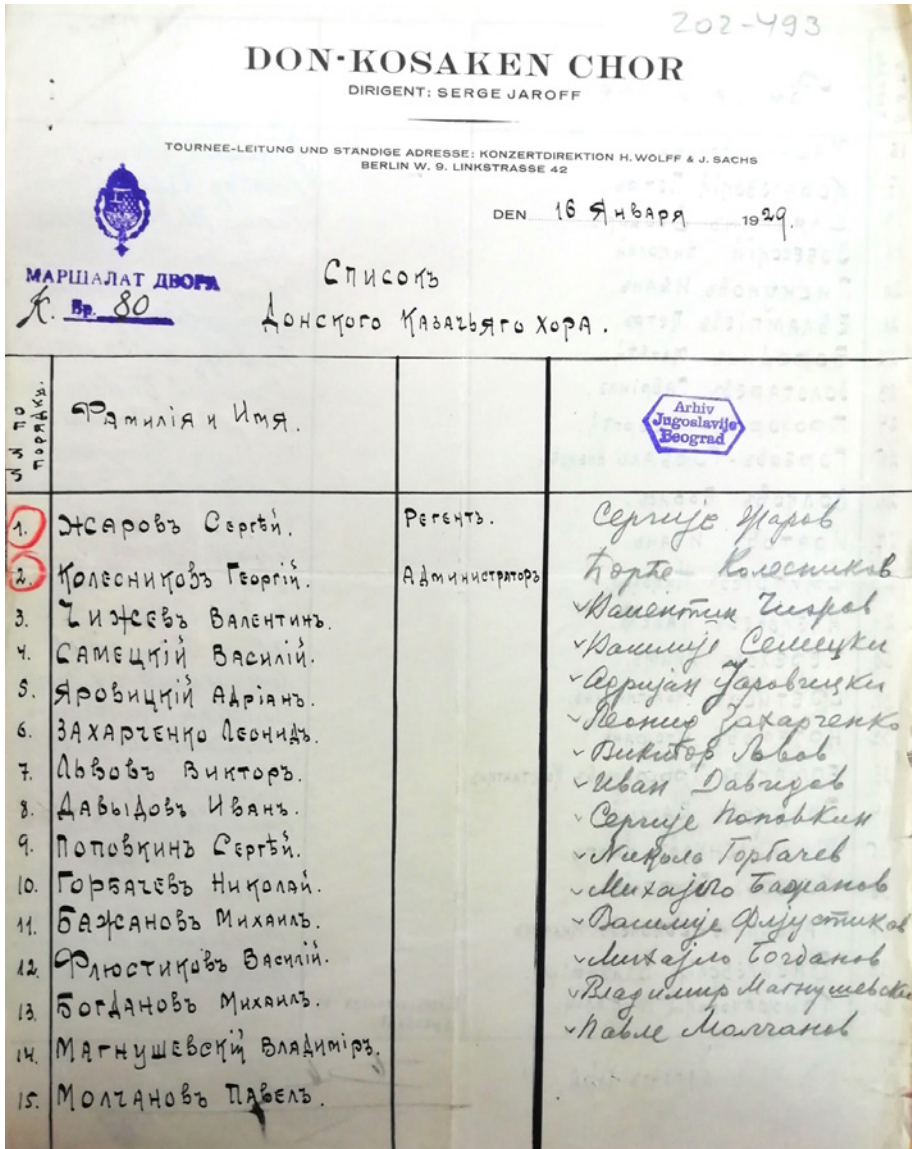 202-493
DON-KOSAKEN CHOR
DIRIGENT: SERGE JAROFF
TOURNEE-LEITUNG UND STÄNDIGE ADRESSE: KONZERTDIREKTION H. WOLFF & J. SACHS
BERLIN W. 9. LINKSTRASSE 42
DEN 16 Января 1929.
МАРШАЛАТ ДВОРА
К. Бр. 80
Списокъ
Донского Казачьяго Хора.
№№ по порядку.
Фамилія и Имя.
Arhiv
Jugoslavije
Beograd
1. Жаровъ Сергѣй. Регентъ. Сергије Жаров
2. Колесниковъ Георгій. Администраторъ Ђорђе Колесников
3. Чижевъ Валентинъ. Валентин
4. Самецкій Василій. Василије Семецки
5. Яровицкій Адріанъ. Адријан Јаровицки
6. Захарченко Леонидъ. Леонид Захарченко
7. Львовъ Викторъ. Виктор Љвов
8. Давыдовъ Иванъ. Иван Давидов
9. Поповкинъ Сергѣй. Сергије Поповкин
10. Горбачевъ Николай. Никола Горбачев
11. Бажановъ Михаилъ. Михајло Бажанов
12. Флюстиковъ Василій. Василије Фљустиков
13. Богдановъ Михаилъ. Михајло Богданов
14. Магнушевскій Владиміръ. Владимир Магнушевски
15. Молчановъ Павелъ. Павле Молчанов